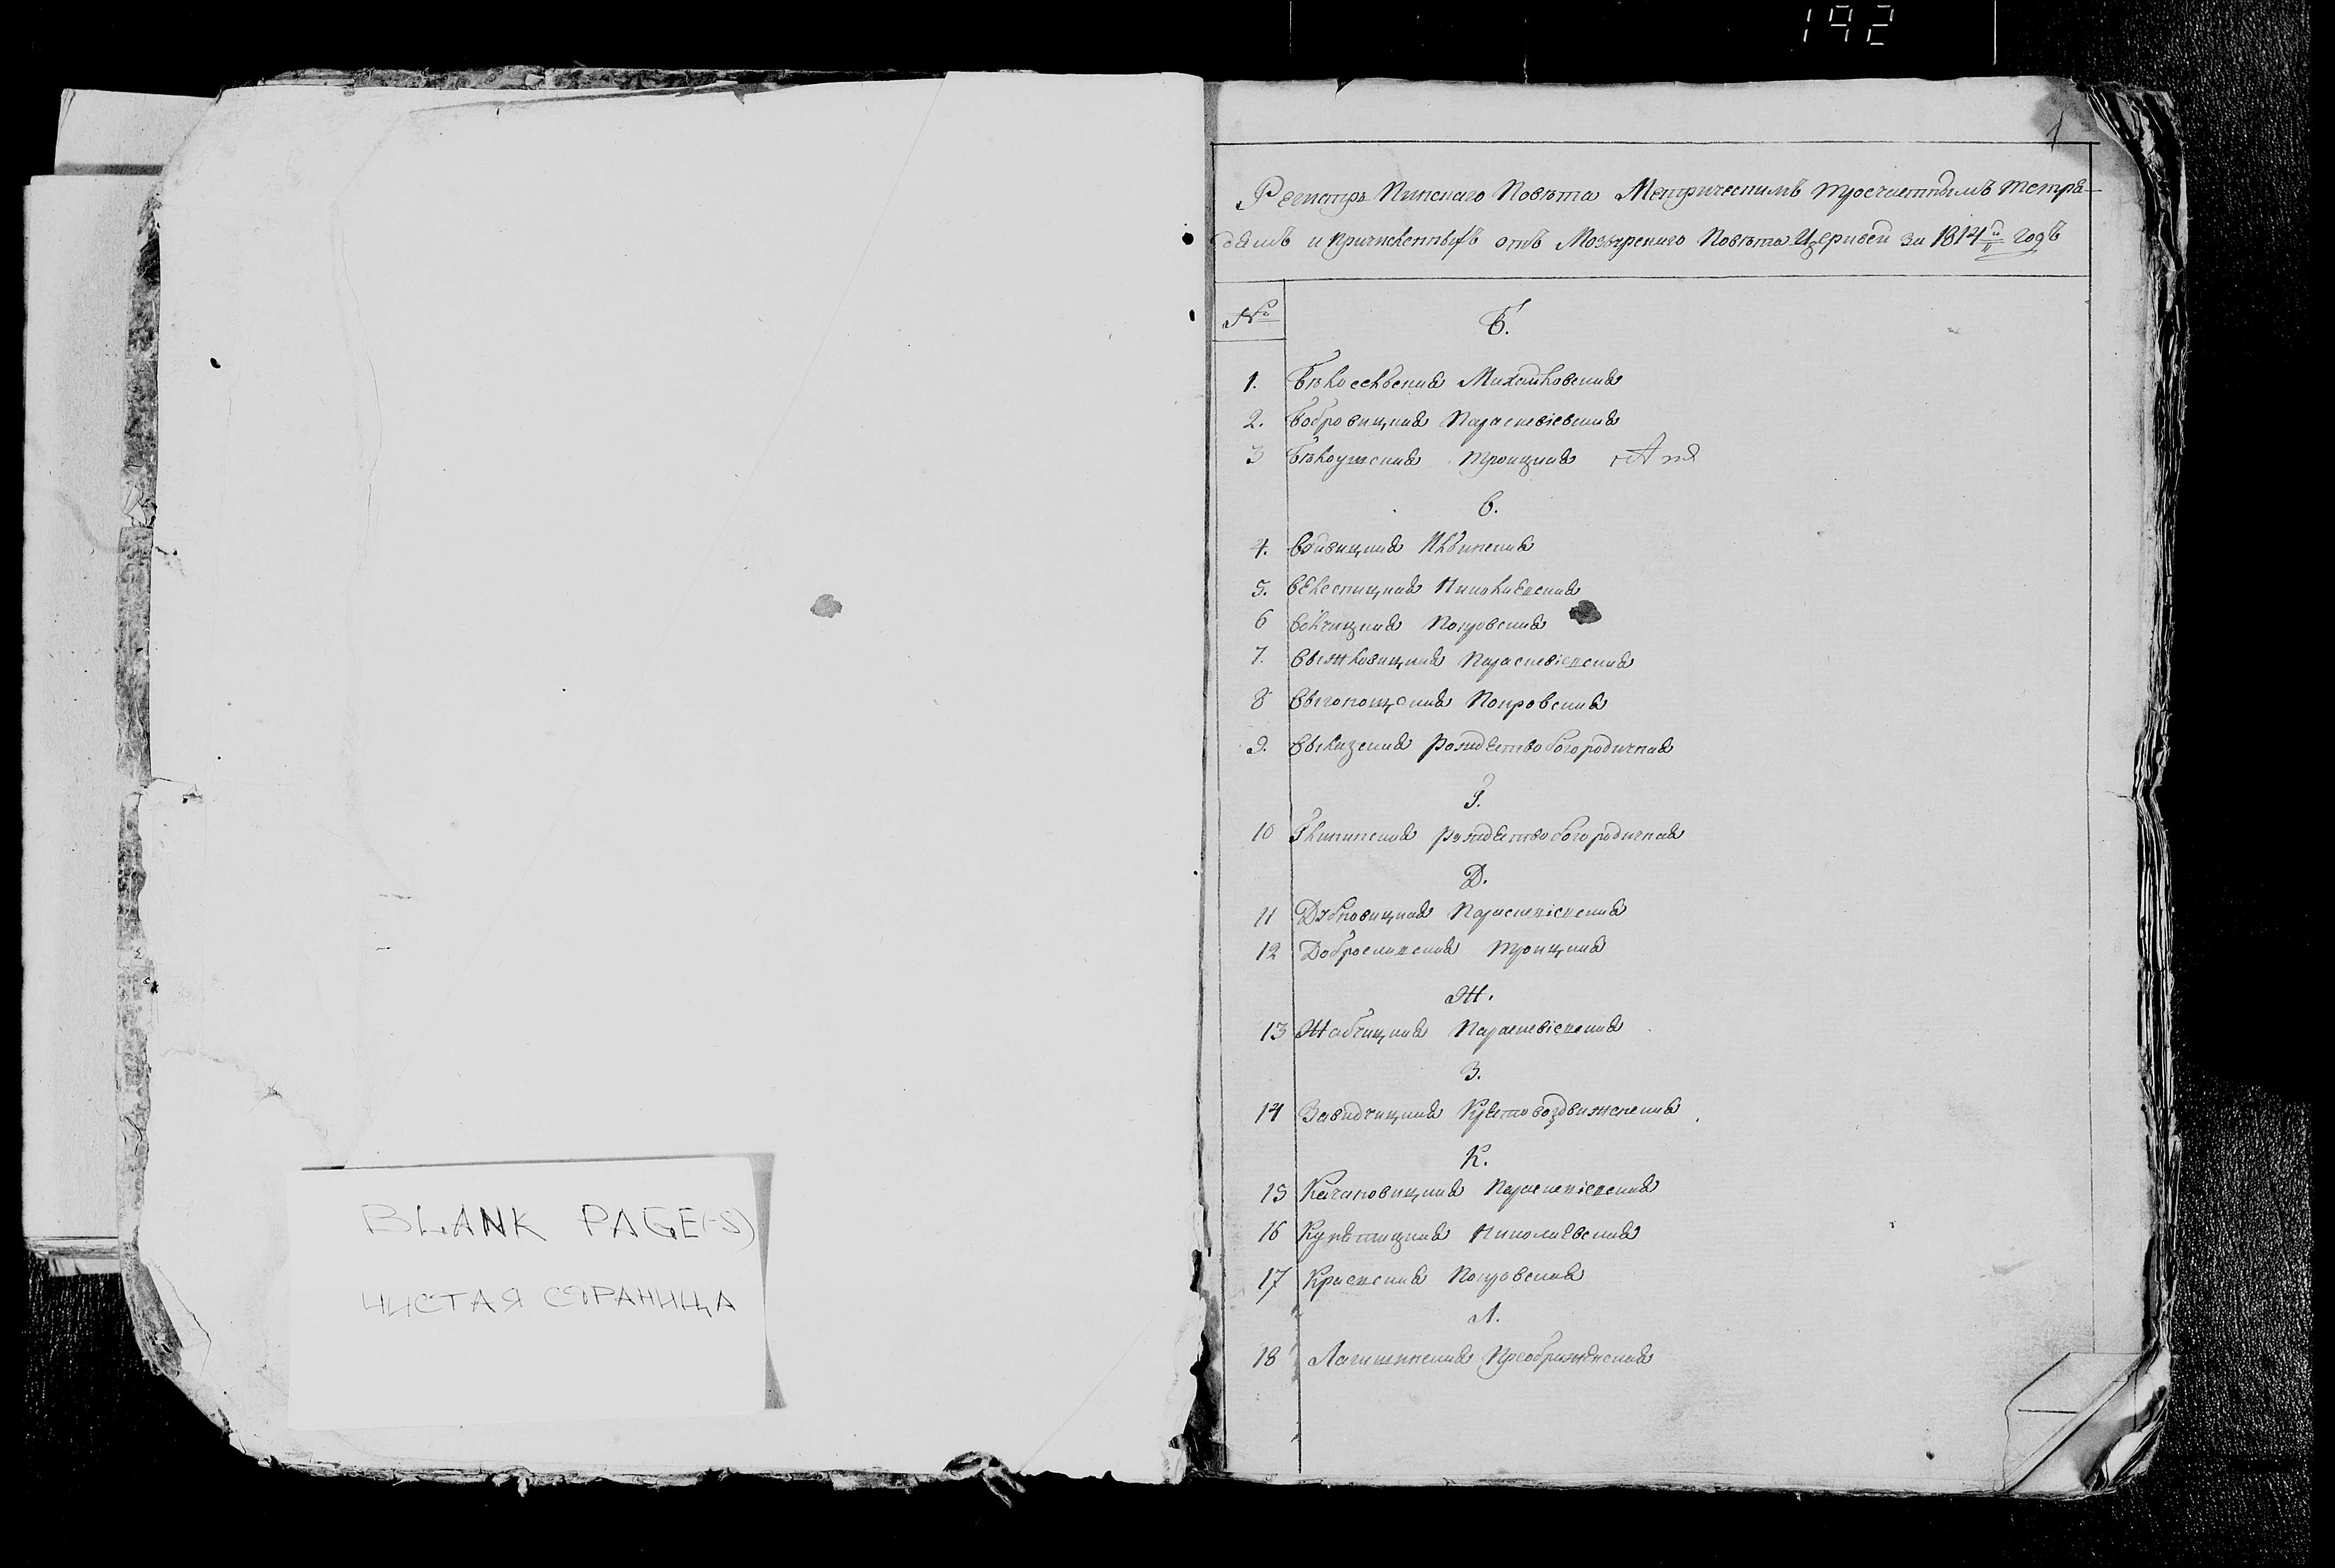 192
1
Регистръ Пинскаго Повѣта Метрическимъ троечастнымъ тетра-
дямъ и причисленныхъ отъ Мозырскаго Повѣта Церквей за 1814й годъ
№
Б.
1. Бѣлосельская Михайловская
2. Бобровицкая Параскевіевская
3 Бѣлоушская Троицкая
В.
4. Вяйвицкая Ильинская
5. Велесницкая Николаевская
6 Вольчицкая Покровская
7. Выжловицкая Параскевіевская
8 Выгонощская Покровская
9. Вылазская рождество богородичная
Г.
10 Глинянская рождество богородичная
Д.
11 Дубновицкая Параскевіевская
12 Доброславская Троицкая
Ж.
13 Жабчицкая Параскевіевская
З.
14 Завидчицкая Крестовоздвиженская
К.
15 Качановицкая Параскевіевская
16 Купятицкая Николаевская
17 Краевская Покровская
Л.
18 Лагишинская Преображенская
BLANK PAGE(-S)
ЧИСТАЯ СТРАНИЦА